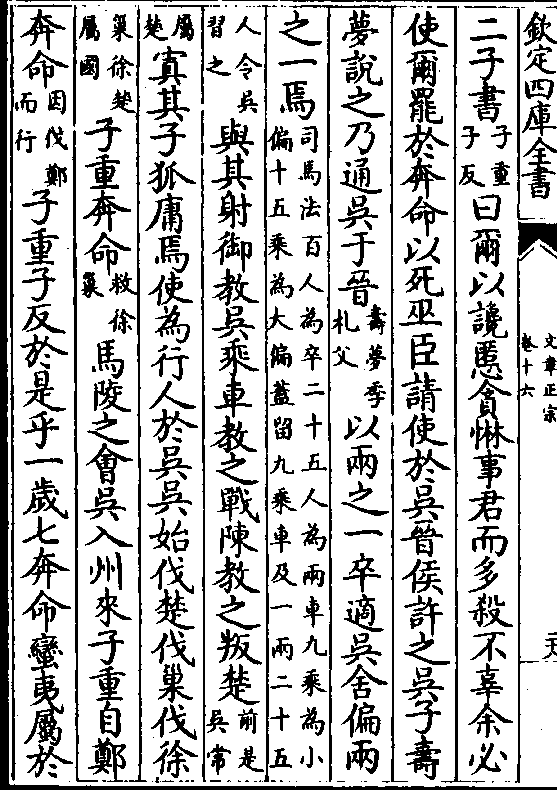 欽定四庫全書
文章正宗
卷十六
二子書子重子反曰爾以讒慝貪惏事君而多殺不辜余必
使爾罷於奔命以死巫臣請使於吳晉侯許之吳子壽
夢說之乃通吳于晉壽夢季札父以兩之一卒適吳舍偏兩
之一焉司馬法百人為卒二十五人為兩車九乘為小偏十五乘為大偏蓋留九乘車及一兩二十五
人令吳習之與其射御教吳乘車教之戰陳教之叛楚前是吳常
屬楚寘其子狐庸焉使為行人於吳吳始伐楚伐巢伐徐
巢徐楚屬國子重奔命救徐巢馬陵之會吳入州來子重自鄭
奔命因伐鄭而行子重子反於是乎一歲七奔命蠻夷屬於